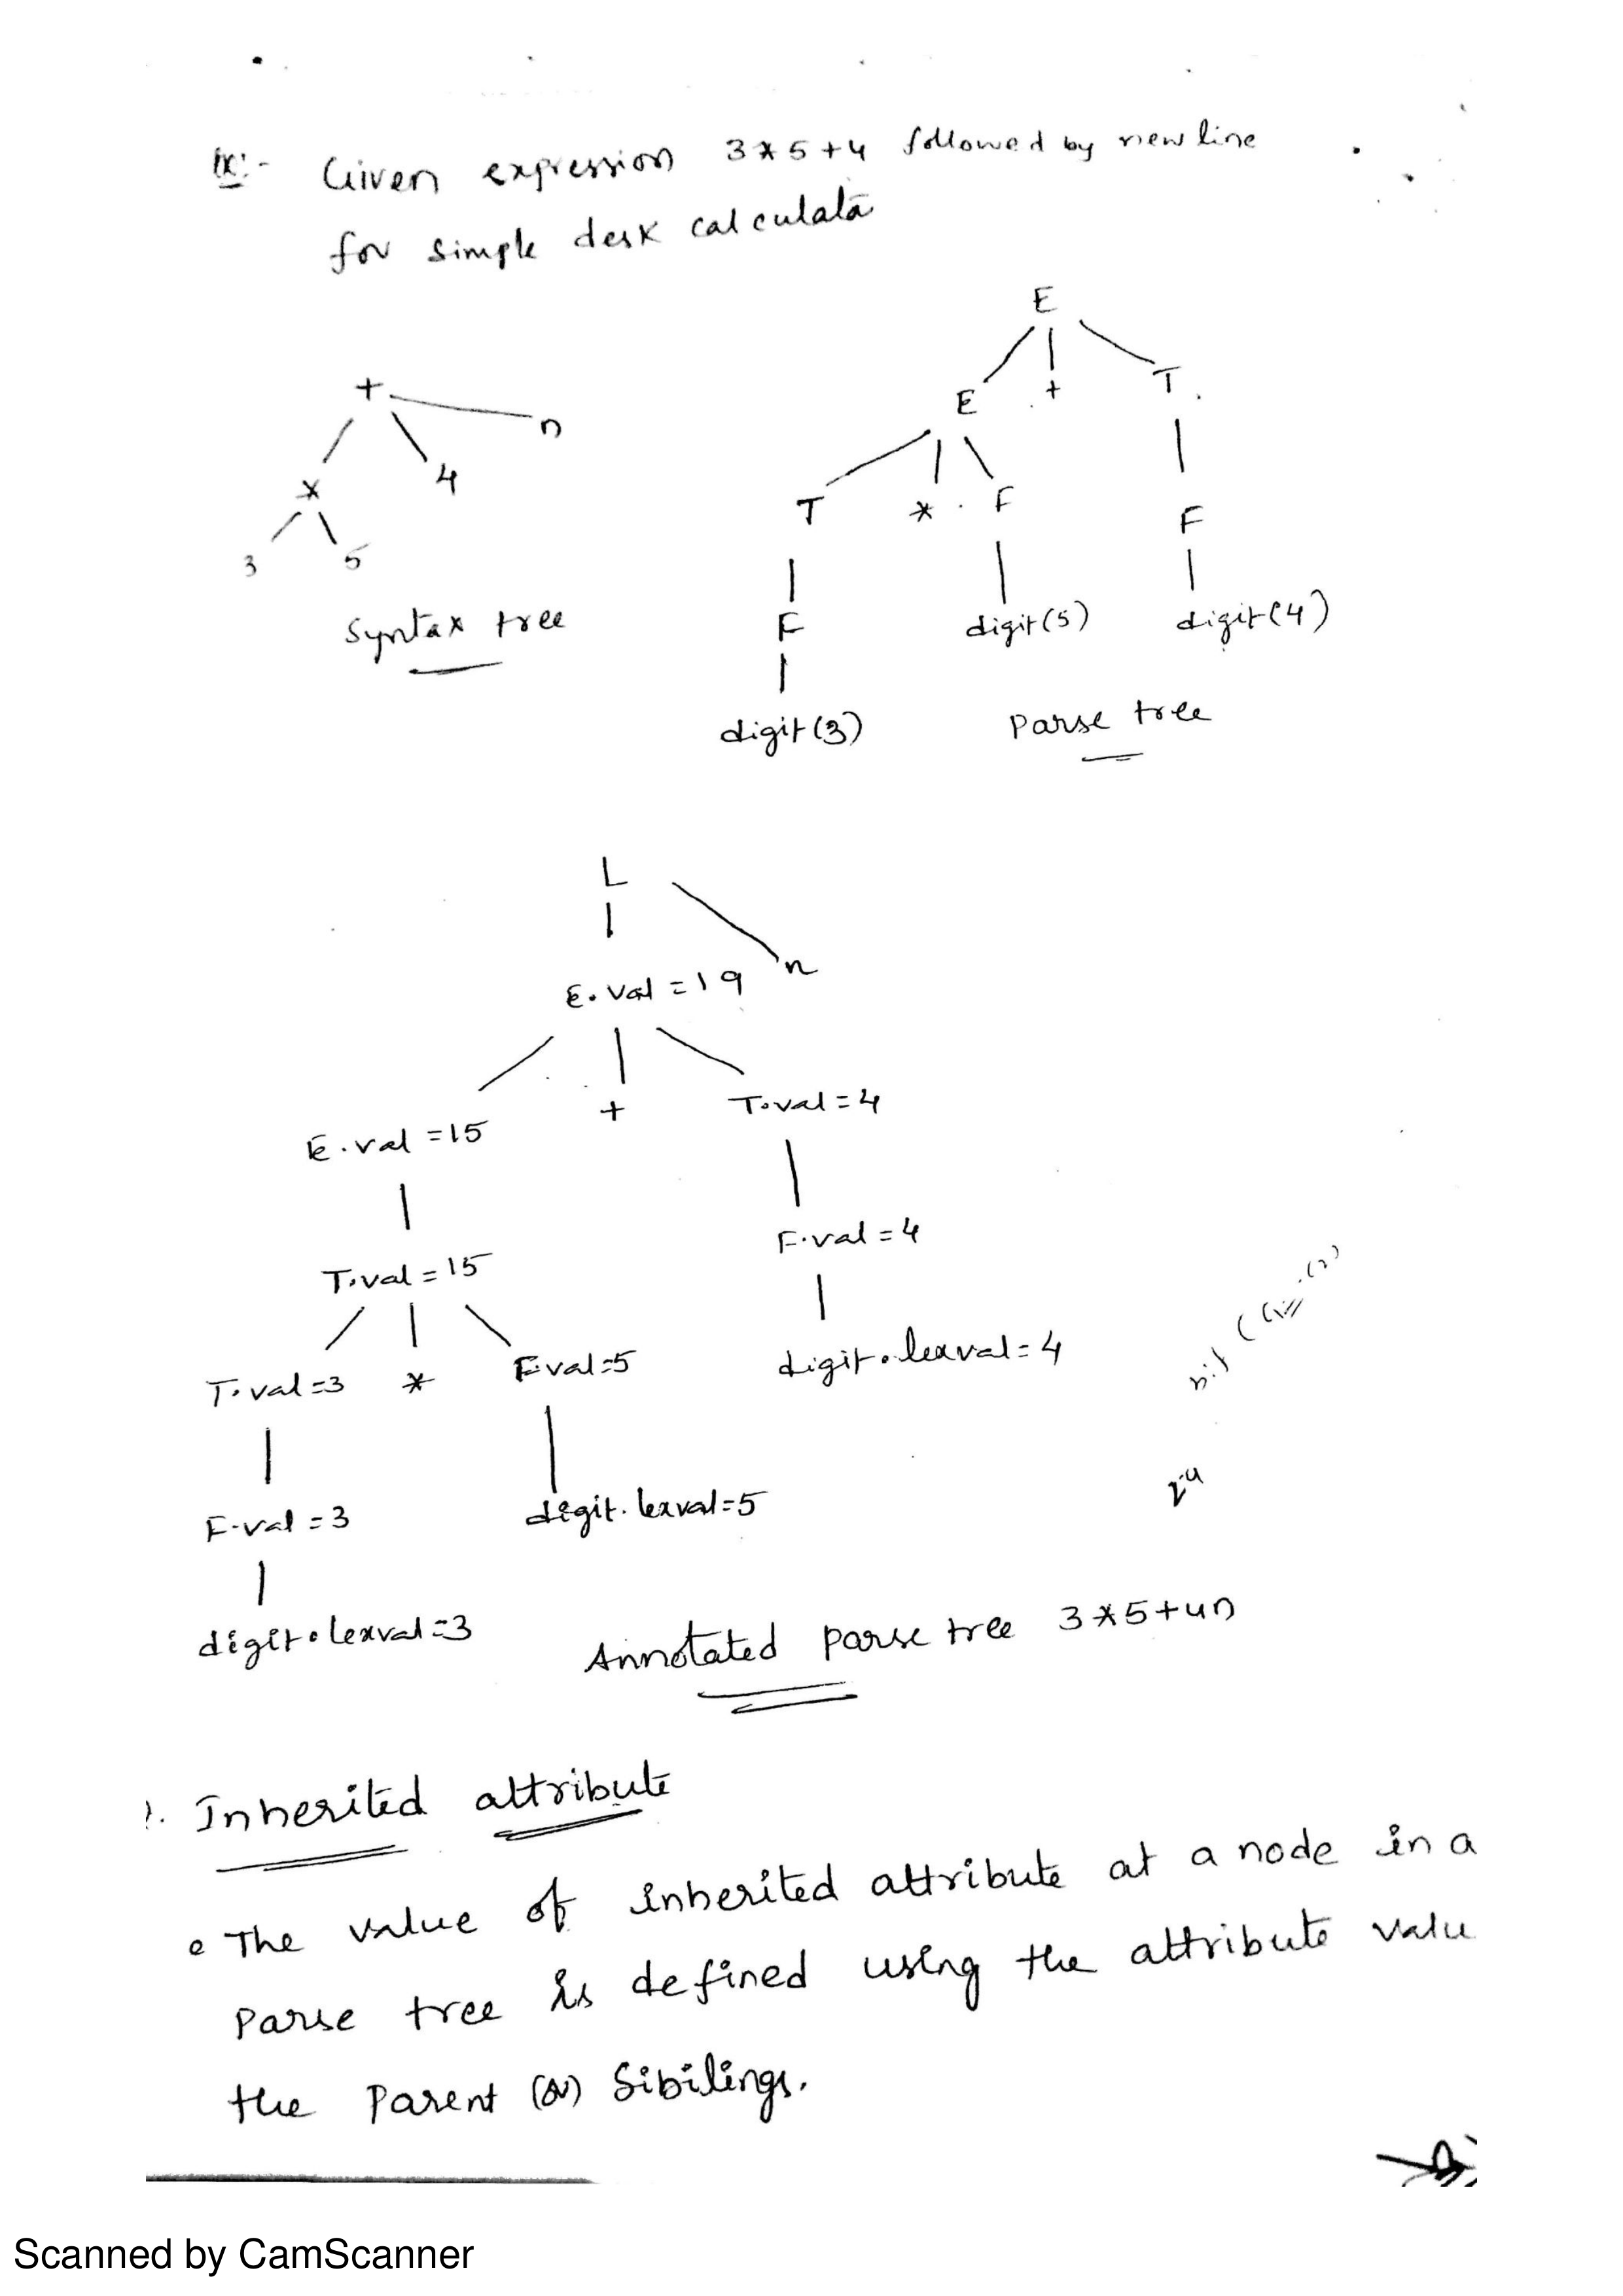 Ex:- Given expression 3*5+4 followed by new line
for simple desk calculata
E
+ n
E + T
* 4
T * F
F
3 5
digit(5) digit(4)
Syntax tree
F
digit(3)
Parse tree
L
n
E.val = 19
E.val = 15 + T.val = 4
T.val = 15 F.val = 4
T.val = 3 * F.val = 5 digit.lexval = 4
F.val = 3 digit.lexval = 5
digit.lexval = 3
Annotated parse tree 3*5+4n
Inherited attribute
The value of inherited attribute at a node in a
parse tree is defined using the attribute value
the Parent (or) Sibilings.
Scanned by CamScanner